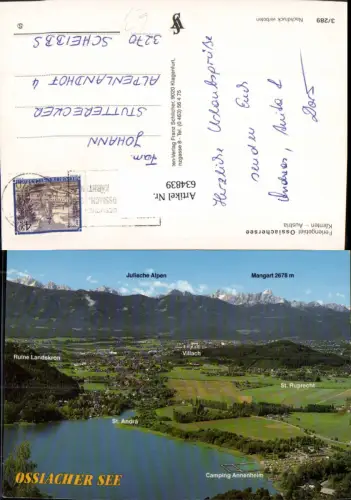 3/289
Nachdruck verboten
Herzliche Urlaubsgrüße
senden Euch
Andreas, Anita &
Fam.
JOHANN
STUTTERECKER
ALPENLANDHOF 4
3270 SCHEIBBS
Verlag Franz Schilcher, 9020 Klagenfurt,
Tel. (0 463) 56 4 75
Artikel Nr.
634839
Feriengebiet Ossiachersee
Kärnten – Austria
Julische Alpen
Mangart 2678 m
Ruine Landskron
Villach
St. Ruprecht
St. Andrä
Camping Annenheim
OSSIACHER SEE